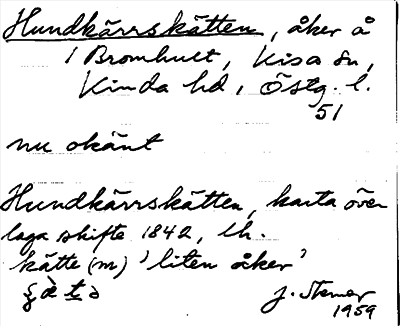 Hundkärrskätten, åker å
1 Bromhult, Kisa sn,
Kinda hd, Östg. l.
51
nu okänt
Hundkärrskätten, karta över
laga skifte 1842, lh.
kätte (m) 'liten åker'
J. Stemer
1959